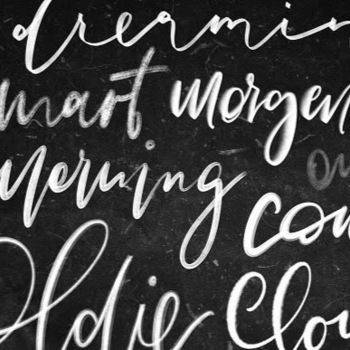 dreamin
smart morgen
Morning
con
ldie Clo